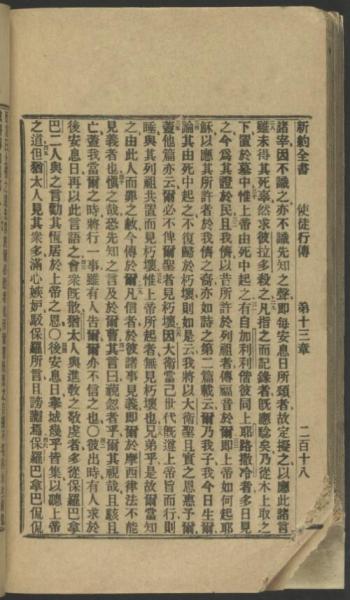 新約全書 使徒行傳 第十三章 二百十八
諸宰因不識之亦不識先知之聲即每安息日所頌者故定擬之以應此諸言
雖未得其死辜然求彼拉多殺之凡指之而記錄者既應驗矣乃從木上取之
下置於墓中惟上帝由死中起之有自加利利偕彼同上耶路撒冷者多日見
之今為其證於民且我儕以昔所許於列祖者傳福音於爾即上帝如何起耶
穌以應其所許者於我儕之裔亦如詩之第二篇載云爾乃我子我今日生爾
論其由死中起之不復歸於朽壞則如是云我將以大衛聖且實之恩惠予爾
蓋他篇亦云爾必不俾爾聖者見朽壞因大衛當己世代既遵上帝旨而行則
睡與其列祖共置而見朽壞惟上帝所起者無見朽壞也兄弟乎是故爾當知
之由此人而罪之赦今傳於爾凡信者於彼諸事見義即爾於摩西律法不能
見義者也慎之哉恐先知之言及於爾曹其言曰視忽者乎爾其視哉且駭且
亡蓋我當爾之時將行一事雖有人告爾爾亦不信之也〇彼出時有人求於
後安息日再以此言語之會衆既散猶太人與進教之敬虔者多從保羅巴拿
巴二人與之言勸其恆居於上帝之恩〇後安息日舉城幾乎皆集以聽上帝
之道但猶太人見其衆多滿心嫉妒駁保羅所言且謗讟焉保羅巴拿巴侃侃